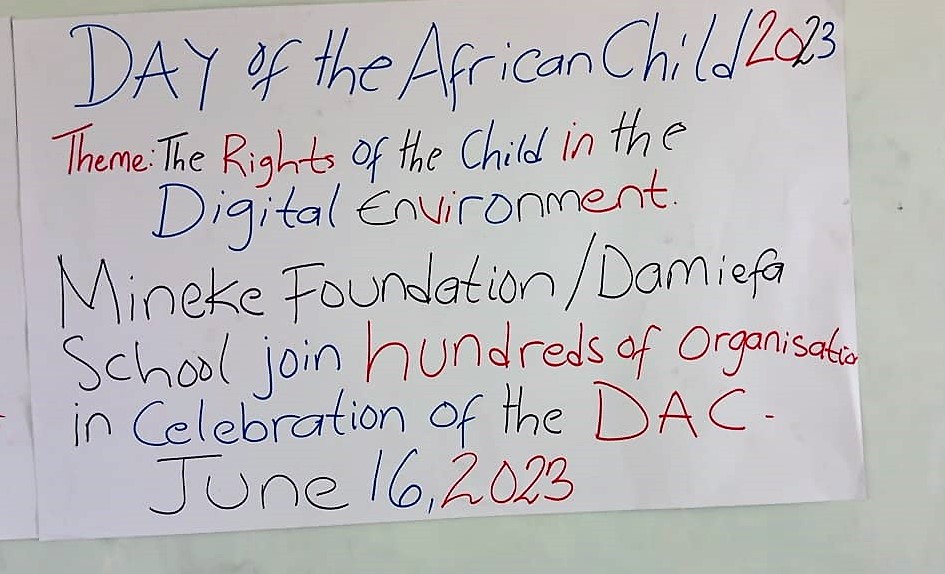 DAY of the African Child 2023
Theme: The Rights of the Child in the
Digital Environment.
Mineke Foundation/Damiefa
School join hundreds of Organisatio
in Celebration of the DAC-
June 16, 2023